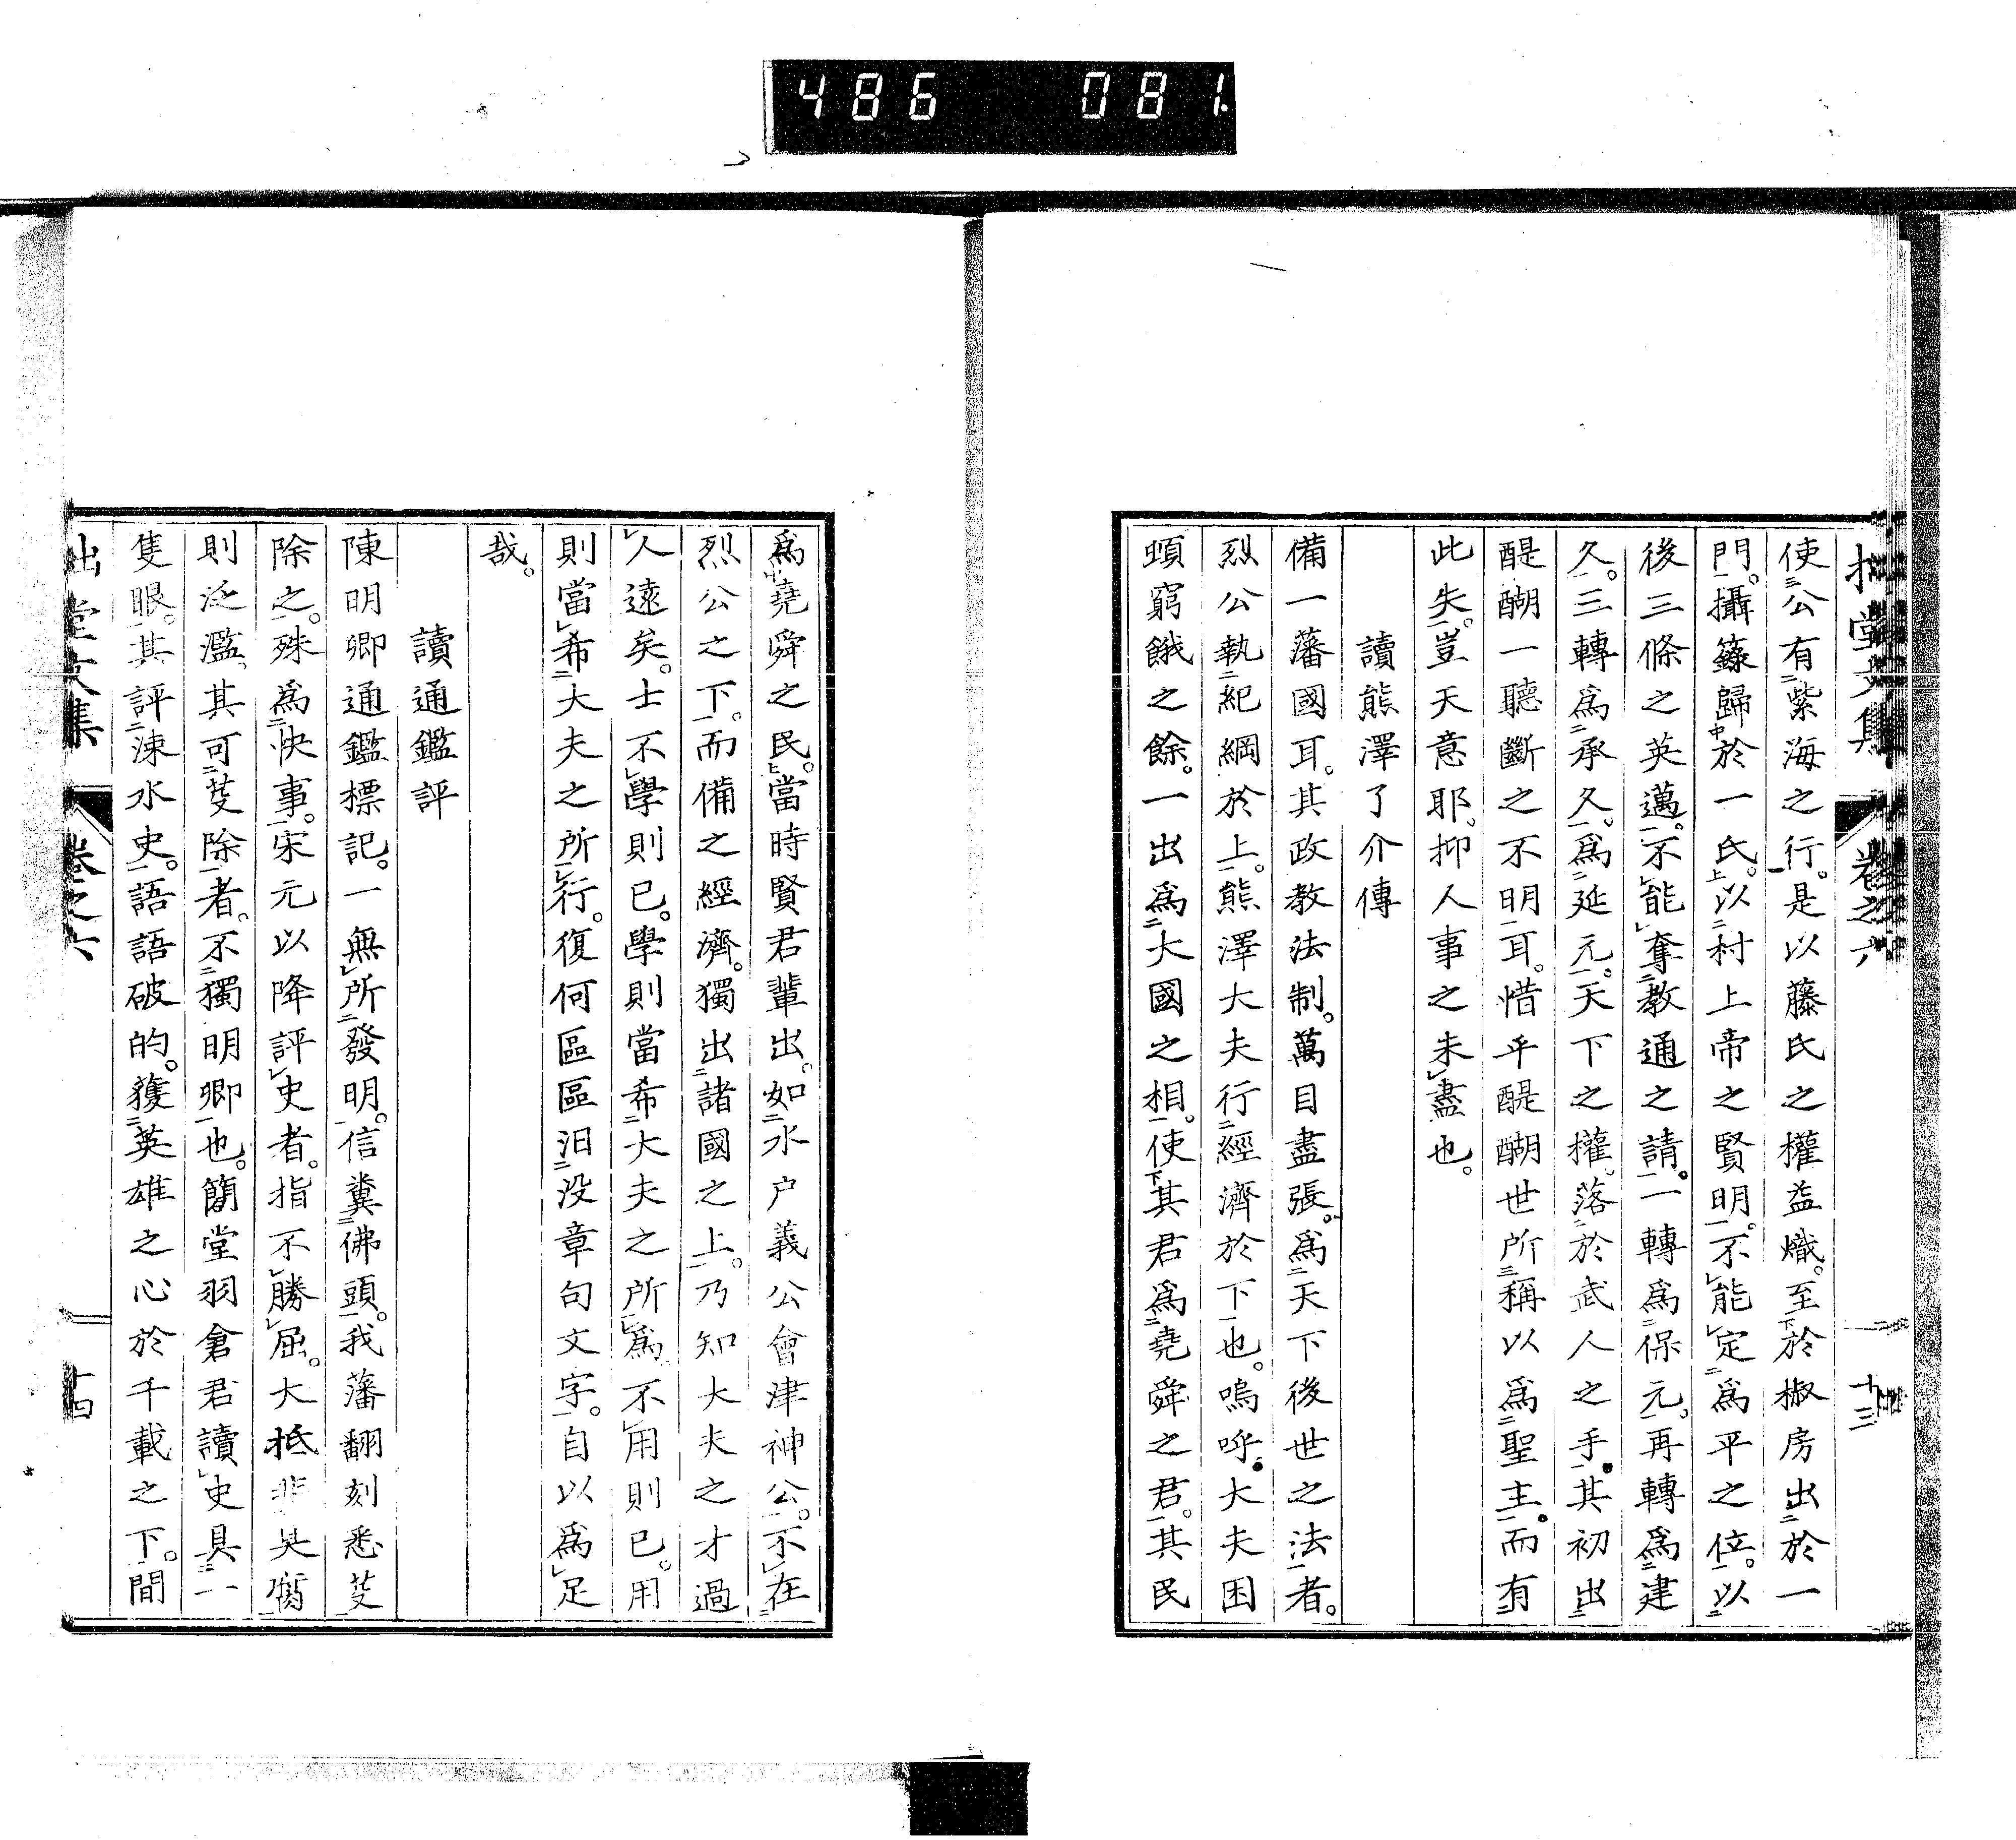 486 081
拙堂文集 卷之六 十三
使公有紫海之行。是以藤氏之權益熾。至於椒房出於一
門。攝籙歸於一氏。以村上帝之賢明。不能定爲平之位。以
後三條之英邁。不能奪教通之請。一轉爲保元。再轉爲建
久。三轉爲承久。爲延元。天下之權。落於武人之手。其初出
醍醐一聽斷之不明耳。惜乎醍醐世所稱以爲聖主。而有
此失。豈天意耶。抑人事之未盡也。
讀熊澤了介傳
備一藩國耳。其政教法制。萬目盡張。爲天下後世之法者。
烈公執紀綱於上。熊澤大夫行經濟於下也。嗚呼。大夫困
頓窮餓之餘。一出爲大國之相。使其君爲堯舜之君。其民
爲堯舜之民。當時賢君輩出。如水戶義公會津神公。不在
烈公之下。而備之經濟。獨出諸國之上。乃知大夫之才過
人遠矣。士不學則已。學則當希大夫之所爲。不用則已。用
則當希大夫之所行。復何區區汨没章句文字。自以爲足
哉。
讀通鑑評
陳明卿通鑑標記。一無所發明。信糞佛頭。我藩翻刻悉芟
除之。殊爲快事。宋元以降評史者。指不勝屈。大抵非失腐
則泛濫。其可芟除者。不獨明卿也。簡堂羽倉君讀史具一
隻眼。其評涑水史。語語破的。獲英雄之心於千載之下。間
拙堂文集 卷之六 十四